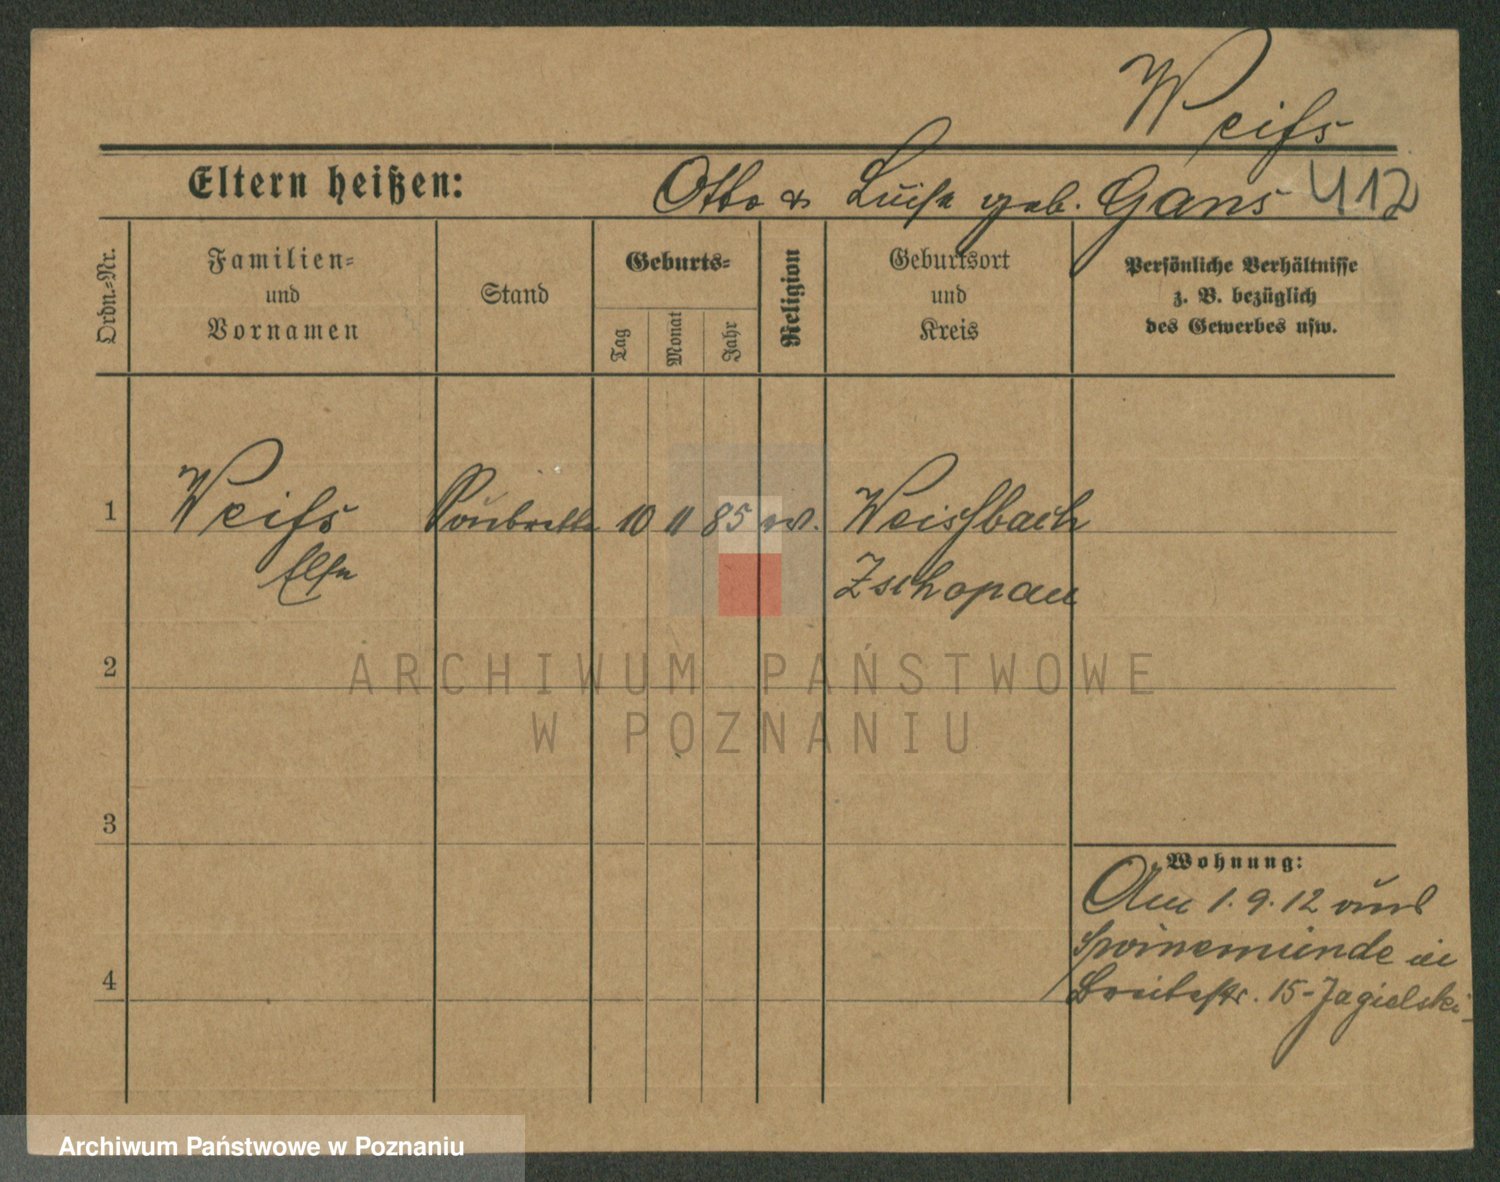 Weiß
Eltern heißen: Otto & Luise geb. Gans 412
Ordn.-Nr.
Familien-
und
Vornamen
Stand
Geburts-
Tag
Monat
Jahr
Religion
Geburtsort
und
Kreis
Persönliche Verhältnisse
z. B. bezüglich
des Gewerbes usw.
1 Weiß Soubrette 10 11 85 ev. Weissbach
Else Zschopau
2
3
4
Wohnung:
Am 1.9.12 aus
Swinemünde in
Breitestr. 15-Jagielski-
ARCHIWUM PAŃSTWOWE
W POZNANIU
Archiwum Państwowe w Poznaniu